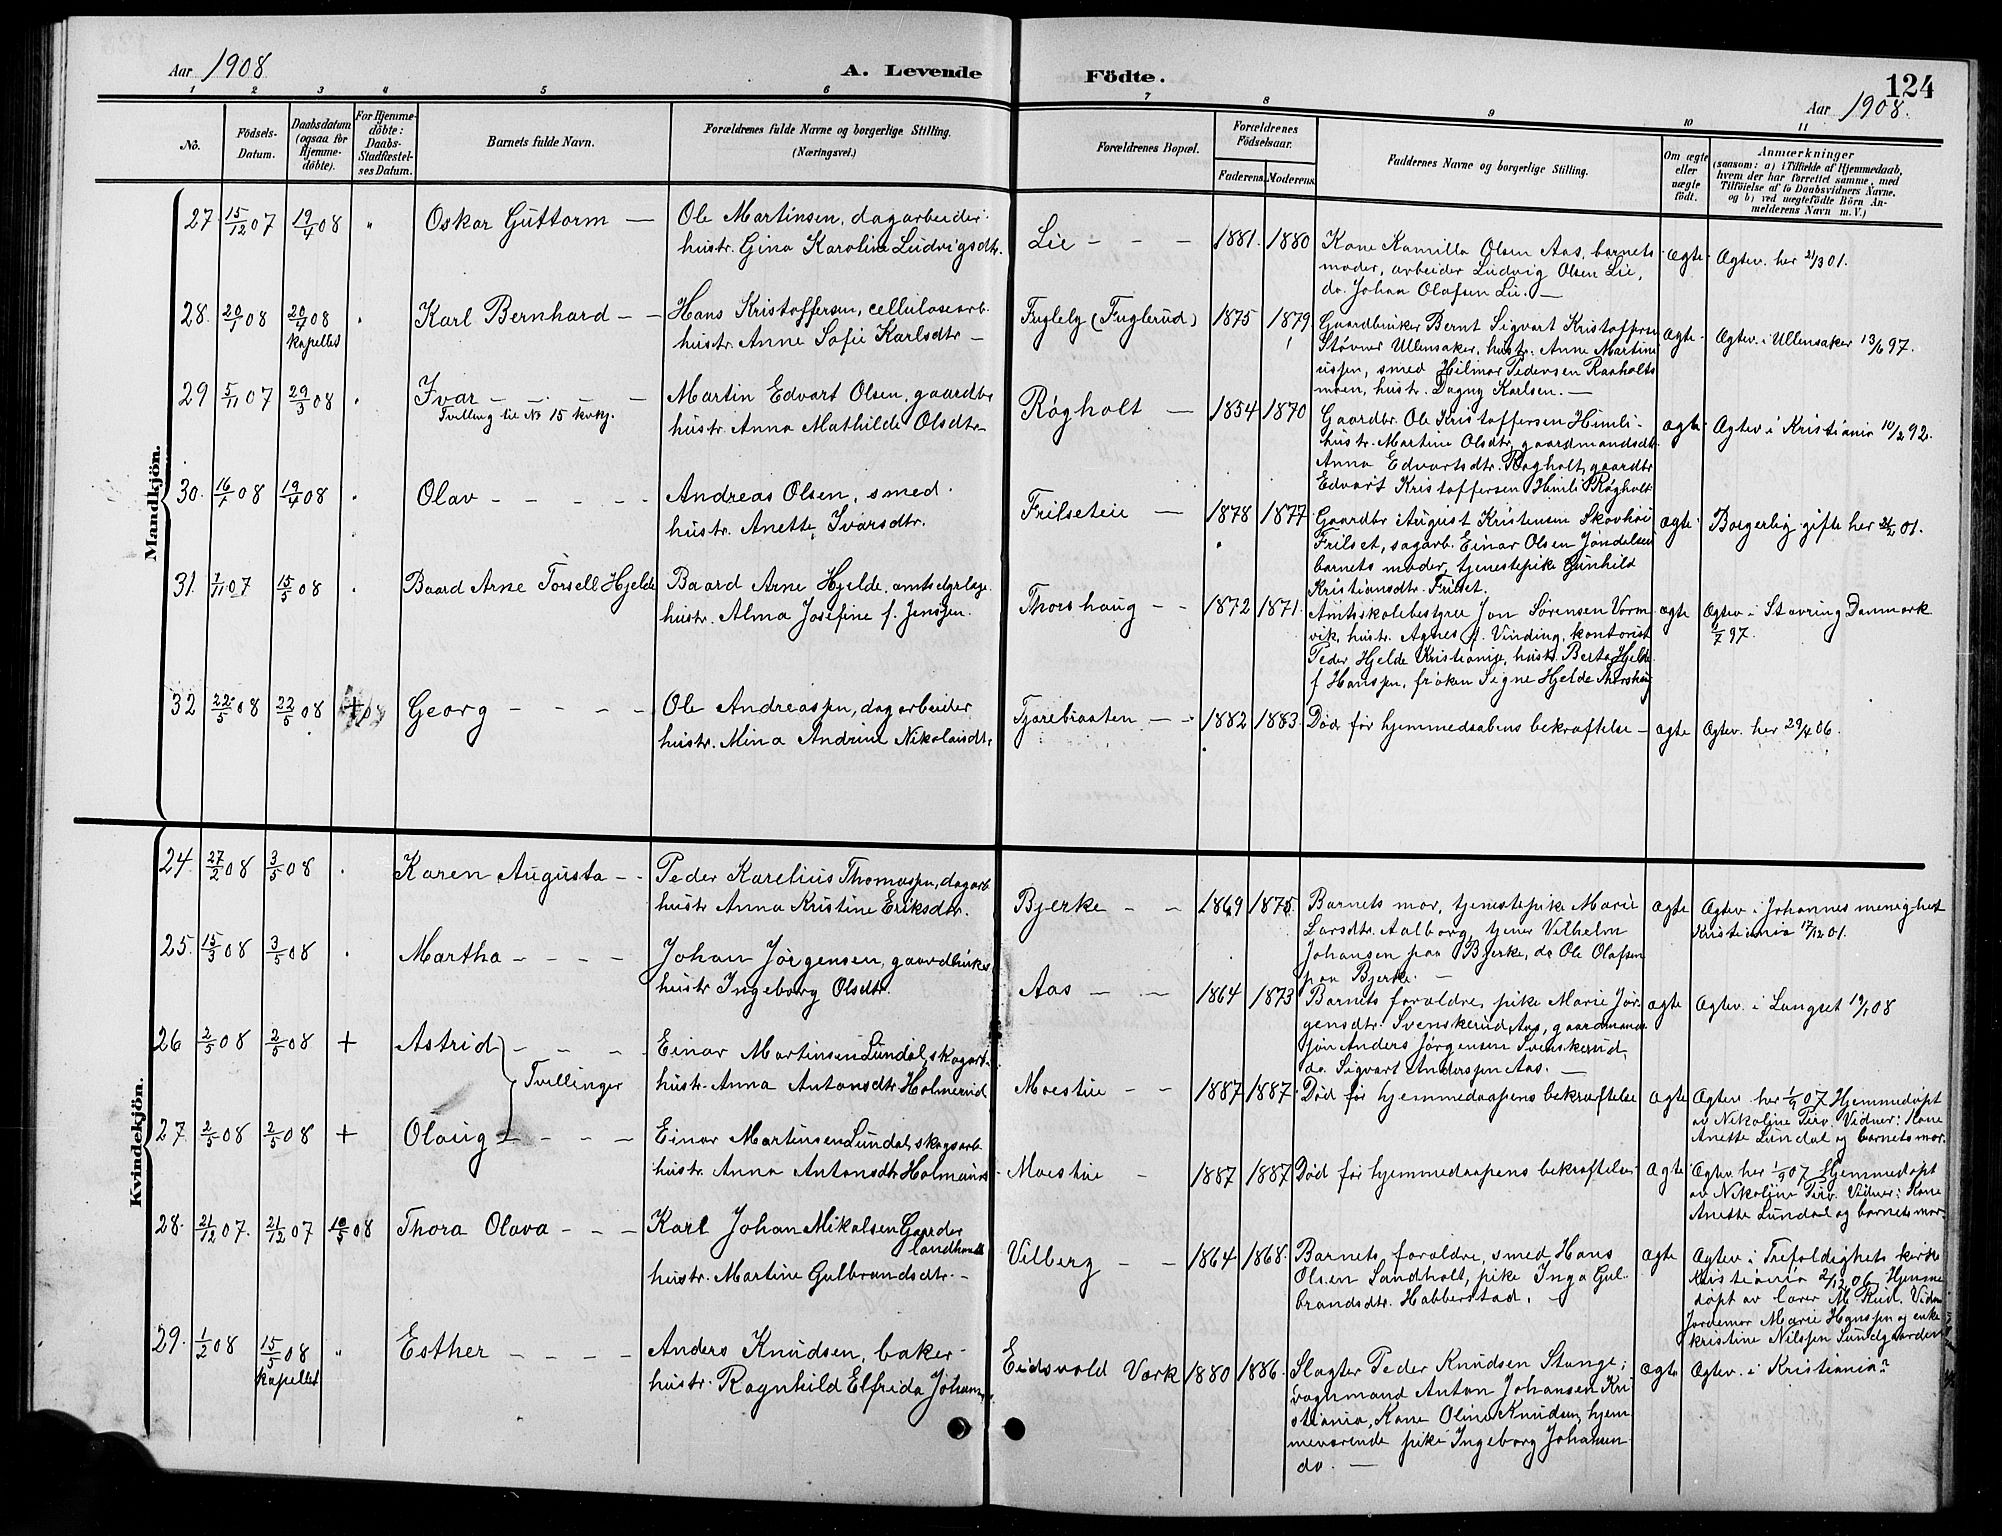 Aar 1908
A. Levende Födte.
124
Aar 1908.
1 2 3 4 5 6 7 8 9 10 11
No.
Födsels-Datum.
Daabsdatum (ogsaa for Hjemme-döbte).
For Hjemme-döbte: Daabs-Stadfæstel-ses Datum.
Barnets fulde Navn.
Forældrenes fulde Navne og borgerlige Stilling.
(Næringsvei.)
Forældrenes Bopæl.
Forældrenes Födselsaar.
Faderens. Moderens.
Faddernes Navne og borgerlige Stilling.
Om ægte eller uægte födt.
Anmærkninger
(saasom: a) i Tilfælde af Hjemmedaab,
hvem der har forrettet samme, med
Tilföielse af to Daabsvidners Navne.
og b) ved uægtefödte Börn An-
melderens Navn m. V.)
Mandkjön.
27 15/12 07 19/4 08 " Oskar Guttorm — Ole Martinsen, dagarbeider
hustr. Gina Karoline Ludvigsdtr.
Lie - - - 1881. 1880
Kone Kamilla Olsen Aas, barnets
moder, arbeider Ludvig Olsen Lie,
do. Johan Olafsen Lie. —
ægte Ægtev. her 21/3 01.
28. 20/1 08 20/4 08 kapellet Karl Bernhard - - Hans Kristoffersen, cellulosearb.
hustr. Anne Sofie Karlsdtr —
Fugleby (Fuglerud) 1875 1879
Gaardbruker Bernt Sigvart Kristoffersen
Støvner Ullensaker, hustr. Anne Martine
, smed Hilmar Pedersen Raaholts
moen, hustr. Dagny Karlsen. —
ægte Ægtev. i Ullensaker 13/6 97.
29 5/11 07 29/3 08 Ivar - - - -
Tvilling til No 15 kvkj.
Martin Edvart Olsen, gaardbr
hustr. Anna Mathilde Olsdtr —
Røgholt — 1854 1870
Gaardbr. Ole Kristoffersen Himli -
hustr. Martine Olsdtr, gaardmandsdtr.
Anna Edvartsdtr. Røgholt, gaardbr
Edvart Kristoffersen Himli Røgholt
ægte Ægtev i Kristiania 10/2 92.
30. 16/1 08 19/4 08 Olav - - - - - Andreas Olsen, smed.
hustr. Anette Ivarsdtr.
Frilseteie — 1878 1877
Gaardbr August Kristensen Skovhei
Frilset, sagarb. Einar Olsen Jøndalsei
barnets moder, tjenestepike Gunhild
Kristiansdtr. Frilset.
ægte Borgerlig gifte her 2/2 01.
31. 1/11 07 15/5 08 Baard Arne Torsell Hjelde Baard Arne Hjelde, amtsdyrlæge
hustr. Alma Josefine f. Jensen.
Thorshaug - - 1872 1871.
Amtsskolebestyrer Jon Sørensen Vorm
vik, hustr. Agnes f. Vinding, kontorist
Peder Hjelde Kristiania, hustr. Berta Hjelde
f Hansen, frøken Signe Hjelde Thorshaug
ægte Ægtev. i Støvring Danmark
1/7 97.
32 22/5 08 22/5 08 + Georg - - - - Ole Andreassen, dagarbeider
hustr. Mina Andrine Nikolaisdtr,
Tjærebraaten - - 1882 1883. Død før hjemmedaabens bekræftelse — ægte Ægtev. her 29/4 06.
Kvindekjön.
24. 27/2 08 3/5 08 Karen Augusta - - Peder Karelius Thomassen, dagarb.
hustr Anna Kristine Eriksdtr.
Bjerke - - 1869 1875.
Barnets mor, tjenestepike Marie
Larsdtr. Aalborg, tjener Vilhelm
Johansen paa Bjerke, do Ole Olafsen
paa Bjerke. —
ægte Ægtev. i Johannes menighet
Kristiania 17/12 01.
25. 15/3 08 3/5 08 Martha - - - - Johan Jørgensen, gaardbruker
hustr Ingeborg Olsdtr.
Aas - - 1864 1873
Barnets forældre, pike Marie Jør-
gensdtr. Svenskerud Aas, gaardmands
søn Anders Jørgensen Svenskerud,
do. Sigvart Anderssen Aas. —
ægte Ægtev. i Langset 19/1 08
26 2/5 08 2/5 08 + Astrid - - - Einar Martinsen Lundal, skogarb.
hustr. Anna Antonsdtr Holmerud
Tvillinger
Moestue - - 1887 1887 Død før hjemmedaapens bekræftelse ægte Ægtev. her 1/9 07 Hjemmedøpt
av Nikoline . Vidner: Kone
Anette Lundal og barnets mor.
27. 2/5 08 2/5 08 + Olaug - - - Einar Martinsen Lundal, skogsarb
hustr. Anna Antonsdtr Holmerud
Moestue - 1887 1887 Død før hjemmedaapens bekræftelse Ægte Ægtev. her 1/9 07 Hjemmedøpt
av Nikoline . Vidner: Kone
Anette Lundal og barnets mor.
28. 21/12 07. 21/12 07 10/5 08 Thora Olava - - - Karl Johan Mikalsen Garder
landhandl
hustr. Martine Gulbrandsdtr. -
Vilberg - - 1864 1868.
Barnets forældre, smed Hans
Olsen Sandholt, pike Inga Gul-
brandsdtr. Habberstad. -
ægte Ægtev. i Trefoldighets kirke
Kristiania 2/12 06, Hjemme
døpt av lærer M Rud. Vidner
Jordemor Marie Hanssen og enke
Kristine Nilssen Lundgaarden
29. 1/2 08 15/5 08 kapellet " Esther - - - - Anders Knudsen, baker
hustr. Ragnhild Elfrida
Eidsvold Værk 1880 1886.
Slagter Peder Knudsen Stange;
vognmand Anton Johansen Kri
stiania, Kone Oline Knudsen, hjem
meværende pike Ingeborg Johansen
do. —
ægte Ægtev. i Kristiania?